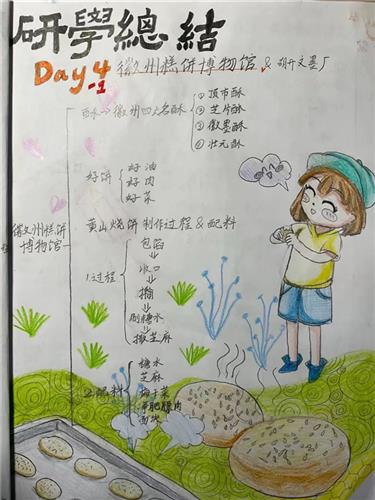 研學總結
Day 4-1 徽州糕饼博物馆 & 胡开文墨厂
徽州糕饼博物馆
酥→徽州四大名酥
① 顶市酥
② 芝片酥
③ 徽墨酥
④ 状元酥
好饼
好油
好肉
好菜
黄山烧饼 制作过程 & 配料
1.过程
包馅
收口
刷糖水
撒芝麻
2.配料
糖水
芝麻
梅干菜
肥膘肉
面块